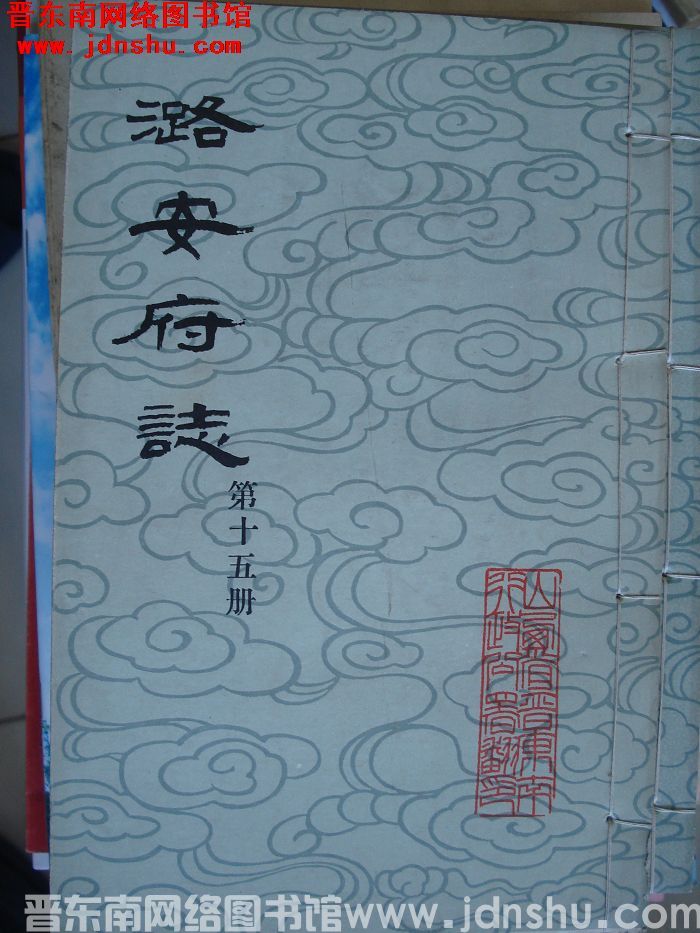 晋东南网络图书馆
www.jdnshu.com
潞安府誌
第十五册
山西省晋東南
行政公署翻印
晋东南网络图书馆www.jdnshu.com